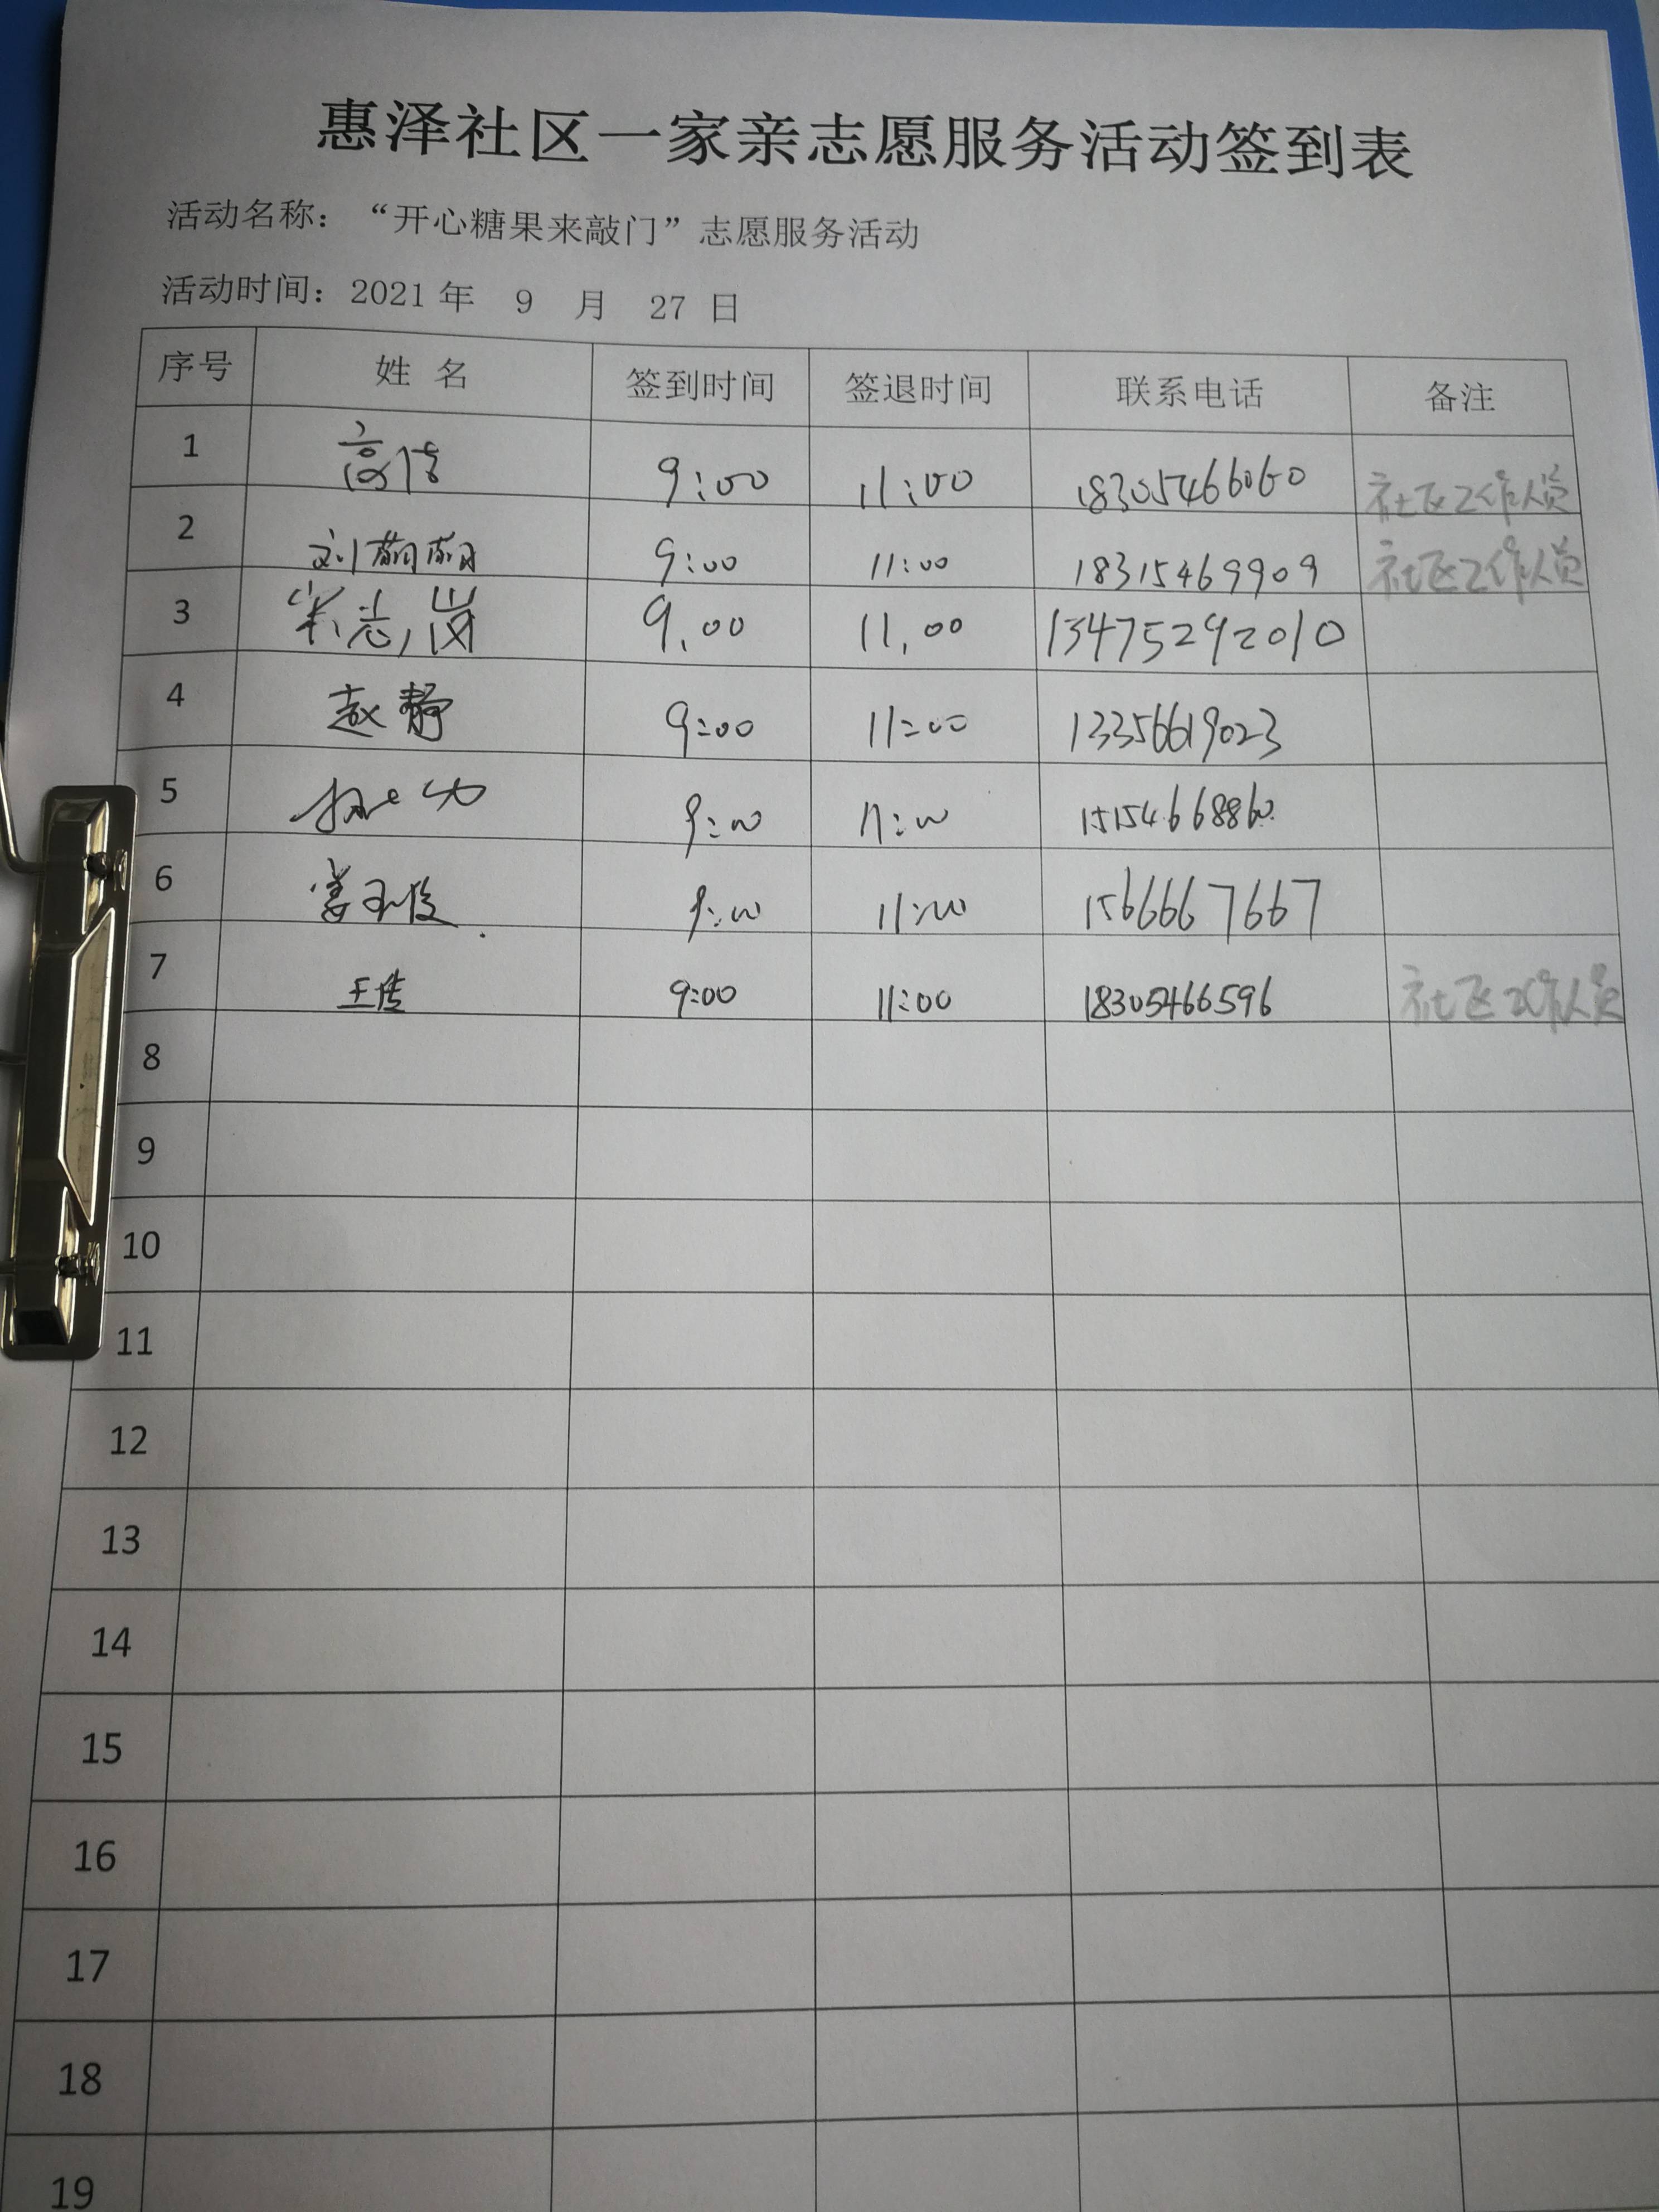 惠泽社区一家亲志愿服务活动签到表
活动名称：“开心糖果来敲门”志愿服务活动
活动时间：2021 年 9 月 27 日
序号 姓 名 签到时间 签退时间 联系电话 备注
1 高倩 9:00 11:00 18305466060 社区工作人员
2 刘萌萌 9:00 11:00 18315469909 社区工作人员
3 志岗 9.00 11.00 13475292010
4 赵静 9:00 11:00 13356619023
5 9:00 11:00 15154668860
6 9:00 11:00 15666667667
7 王倩 9:00 11:00 18305466596 社区工作人员
8
9
10
11
12
13
14
15
16
17
18
19